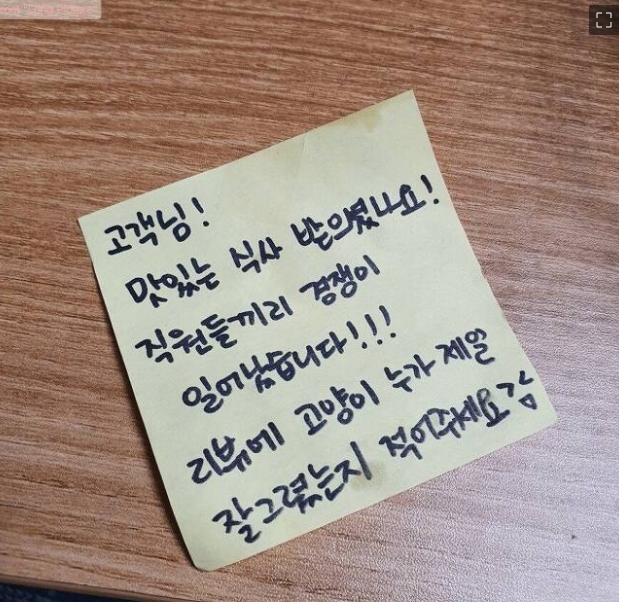 고객님!
맛있는 식사 받으셨나요!
직원들끼리 경쟁이
일어났습니다!!!
리뷰에 고양이 누가 제일
잘그렸는지 적어주세요